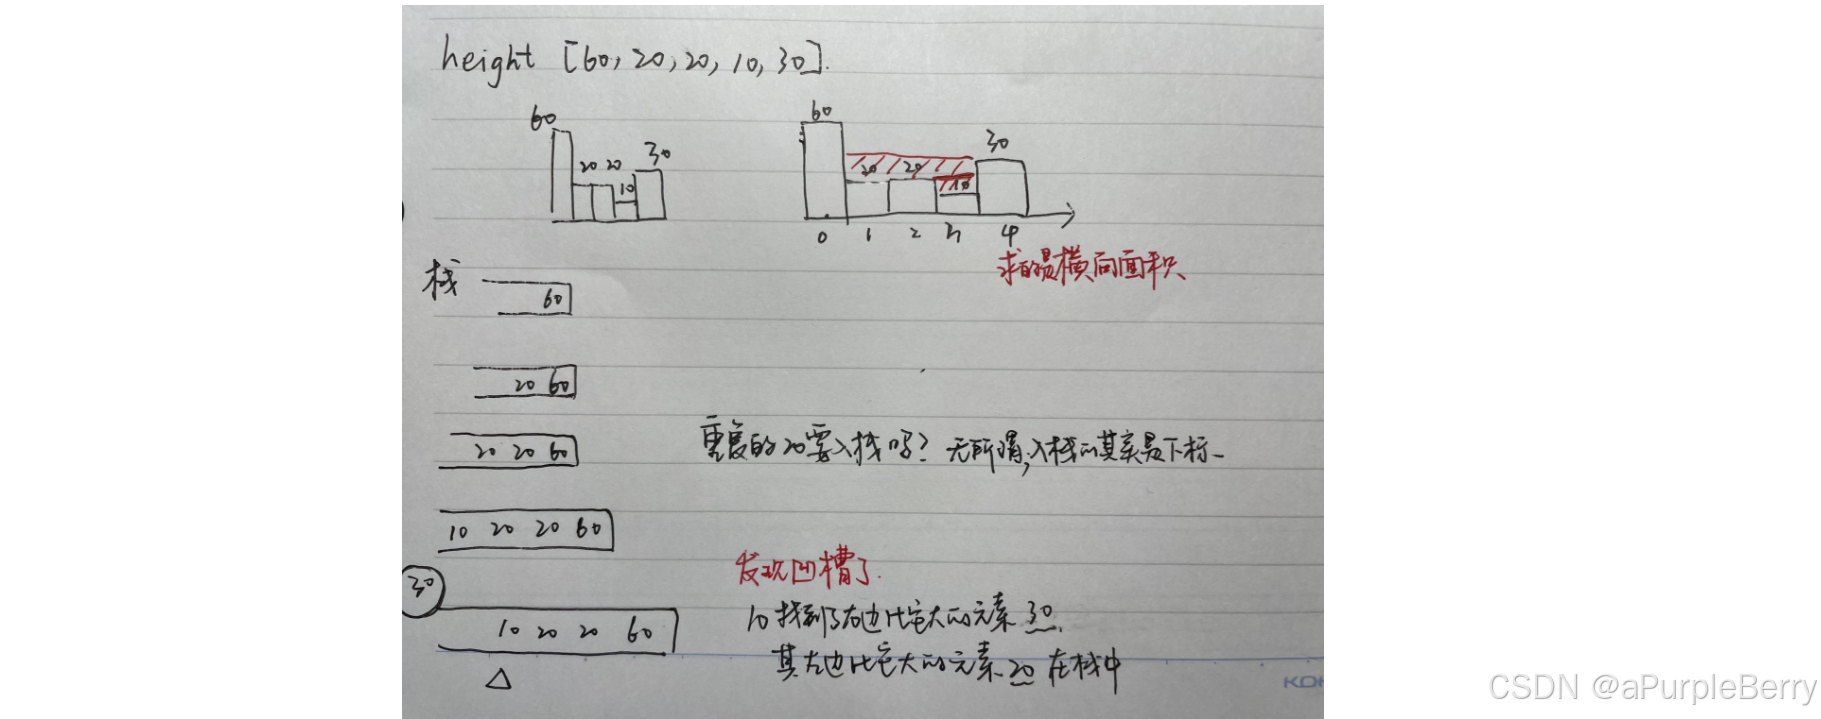 height [60, 20, 20, 10, 30].
60
20 20
10
30
60
20 20
10
30
0 1 2 3 4
求的是横向面积
栈
60
20 60
20 20 60
重复的20要入栈吗？无所谓,入栈的其实是下标
10 20 20 60
发现凹槽了.
30
10 20 20 60
10找到了右边比它大的元素 30.
其左边比它大的元素 20 在栈中
CSDN @aPurpleBerry